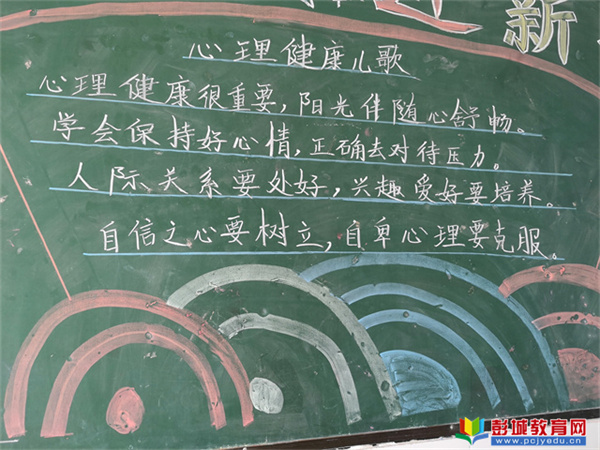 迎新
心理健康儿歌
心理健康很重要，阳光伴随心舒畅。
学会保持好心情，正确去对待压力。
人际关系要处好，兴趣爱好要培养。
自信之心要树立，自卑心理要克服。
彭城教育网
www.pcjyedu.cn